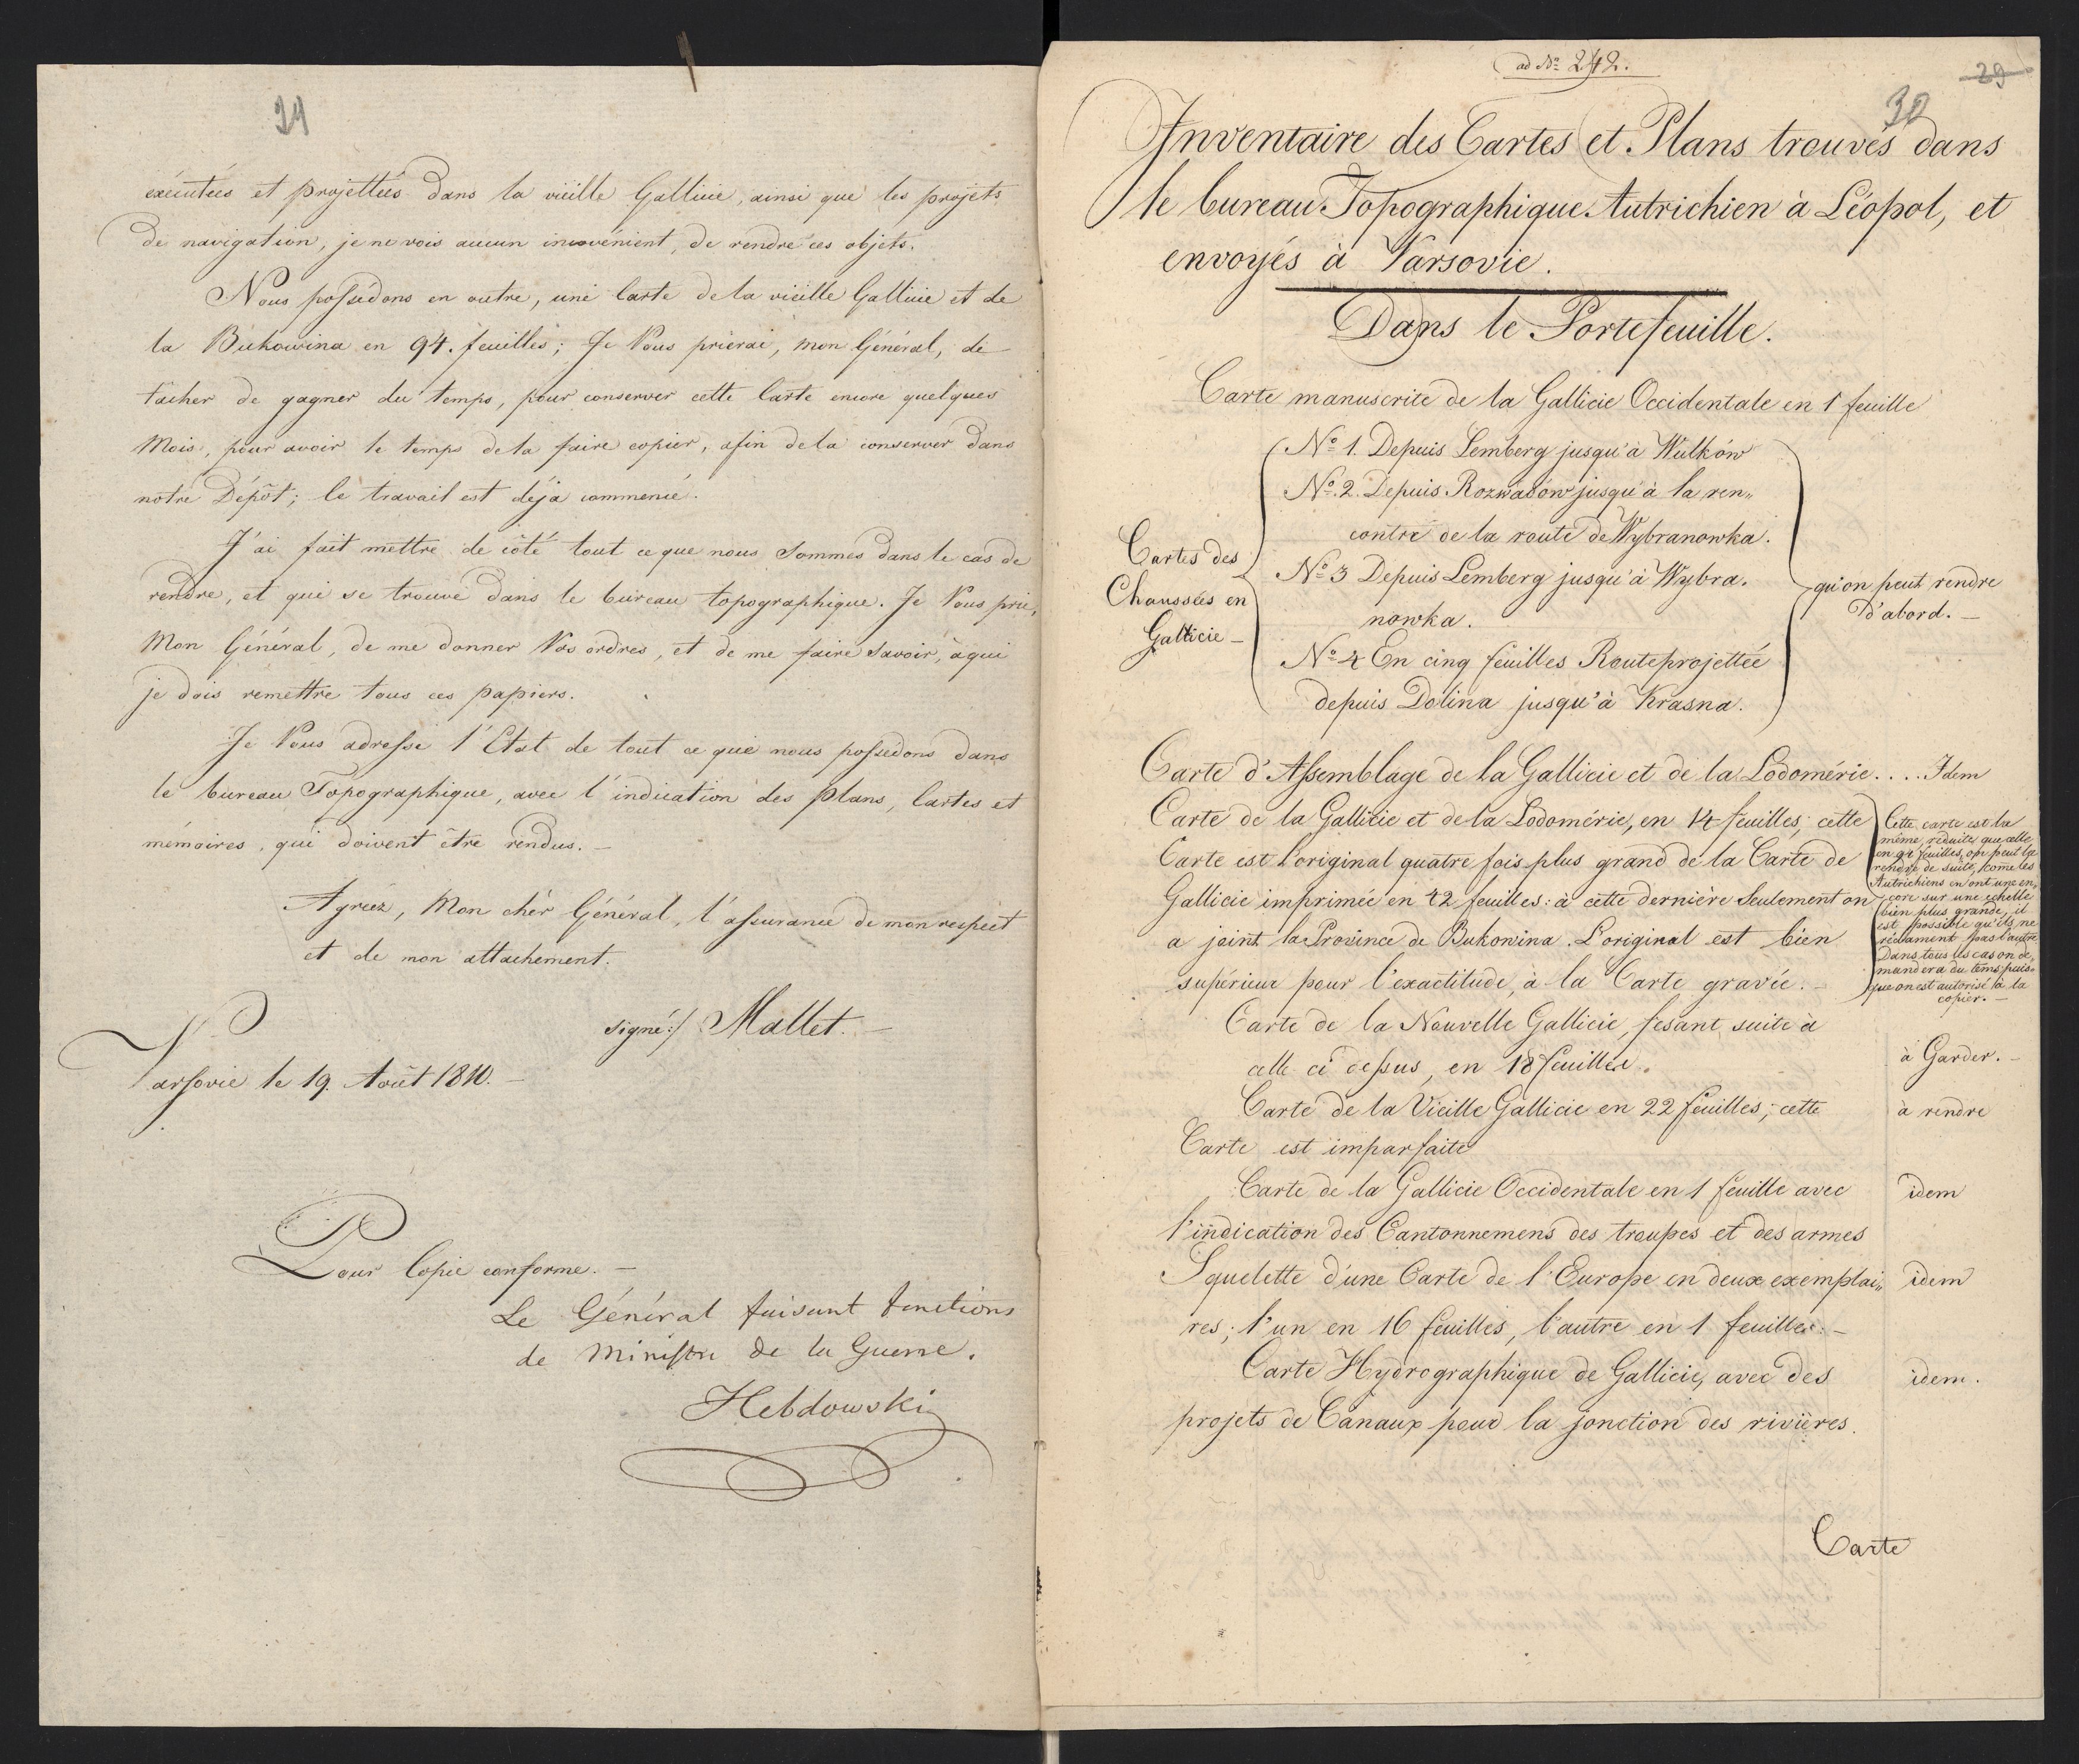 24
exécutées et projettées dans la vieille Gallicie, ainsi que les projets
de navigation, je ne vois aucun inconvénient, de rendre ces objets.
Nous possédons en outre, une Carte de la vieille Gallicie et de
la Bukowina en 94. feuilles; Je Vous prierai, mon Général, de
tacher de gagner du temps, pour conserver cette Carte encore quelques
Mois, pour avoir le temps de la faire copier, afin de la conserver dans
notre Dépôt; le travail est déja commencé.
J'ai fait mettre de côté tout ce que nous sommes dans le cas de
rendre, et qui se trouve dans le bureau topographique. Je Vous prie,
Mon Général, de me donner Vos ordres, et de me faire savoir, à qui
je dois remettre tous ces papiers.
Je Vous adresse l'Etat de tout ce que nous possédons dans
le bureau Topographique, avec l'indication des plans, Cartes et
mémoires, qui doivent être rendus. —
Agréez, Mon chér Général, l'assurance de mon respect
et de mon attachement.
signé:/ Mallet. —
Varsovie le 19. Août 1810. —
Pour Copie conforme. —
Le Général faisant fonctions
de Ministre de la Guerre.
Hebdowski
ad Nº 242.
29
30
Inventaire des Cartes et Plans trouvés dans
le bureau Topographique Autrichien à Léopol, et
envoyés à Varsovie.
Dans le Portefeuille.
Carte manuscrite de la Gallicie Occidentale en 1 feuille
Cartes des
Chaussées en
Gallicie —
Nº 1. Depuis Lemberg jusqu'à Wulków
Nº 2. Depuis Rozwadów jusqu'à la ren„
contre de la route de Wybranowka.
Nº 3 Depuis Lemberg jusqu'à Wybra.
nowka.
Nº 4 En cinq feuilles Route projettée
depuis Dolina jusqu'à Krasna.
qu'on peut rendre
d'abord. —
Carte d'Assemblage de la Gallicie et de la Lodomérie.... Idem
Carte de la Gallicie et de la Lodomérie, en 14 feuilles; cette
Carte est l'original quatre fois plus grand de la Carte de
Gallicie imprimée en 42 feuilles: à cette dernière seulement on
a joint la Province de Bukowina. L'original est bien
supérieur pour l'exactitude, à la Carte gravée. —
Cette carte est la
même réduite que celle
en 94 feuilles, on peut la
rendre de suite, come les
Autrichiens en ont une en„
core sur une echelle
bien plus grande, il
est possible qu'ils ne
réclament pas l'autre
Dans tous les cas on de„
mandera du tems puis„
que on est autorisé à la
copier. —
Carte de la Nouvelle Gallicie, fesant suite à
celle ci dessus, en 18 feuilles.
à Garder. —
Carte de la Vieille Gallicie en 22 feuilles; cette
à rendre
Carte est imparfaite
Carte de la Gallicie Occidentale en 1 feuille avec
idem
l'indication des Cantonnemens des troupes et des armes
Squelette d'une Carte de l'Europe en deux exemplai„
idem
res; l'un en 16 feuilles, l'autre en 1 feuille. —
Carte Hydrographique de Gallicie, avec des
idem.
projets de Canaux pour la jonction des rivières.
Carte